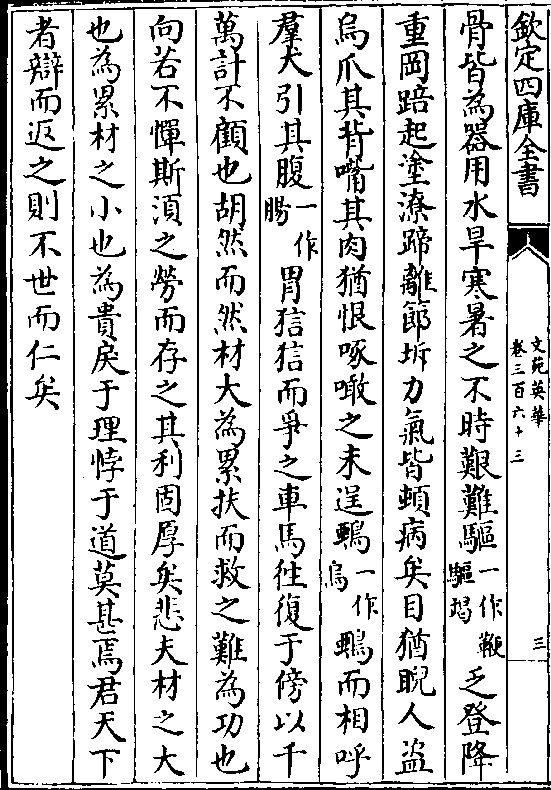 欽定四庫全書
文苑英華
卷三百六十三
三
骨皆為器用水旱寒暑之不時艱難驅一作鞭驅朅乏登降
重岡踣起塗潦蹄離節坼力氣皆頓病矣目猶睨人盗
烏爪其背嘴其肉猶恨啄噉之未逞鵶一作烏鵶而相呼
羣犬引其腹一作腸胃狺狺而爭之車馬徃復于傍以千
萬計不顧也胡然而然材大為累扶而救之難為功也
向若不憚斯湏之勞而存之其利固厚矣悲夫材之大
也為累材之小也為貴戾于理悖于道莫甚焉君天下
者辯而返之則不世而仁矣